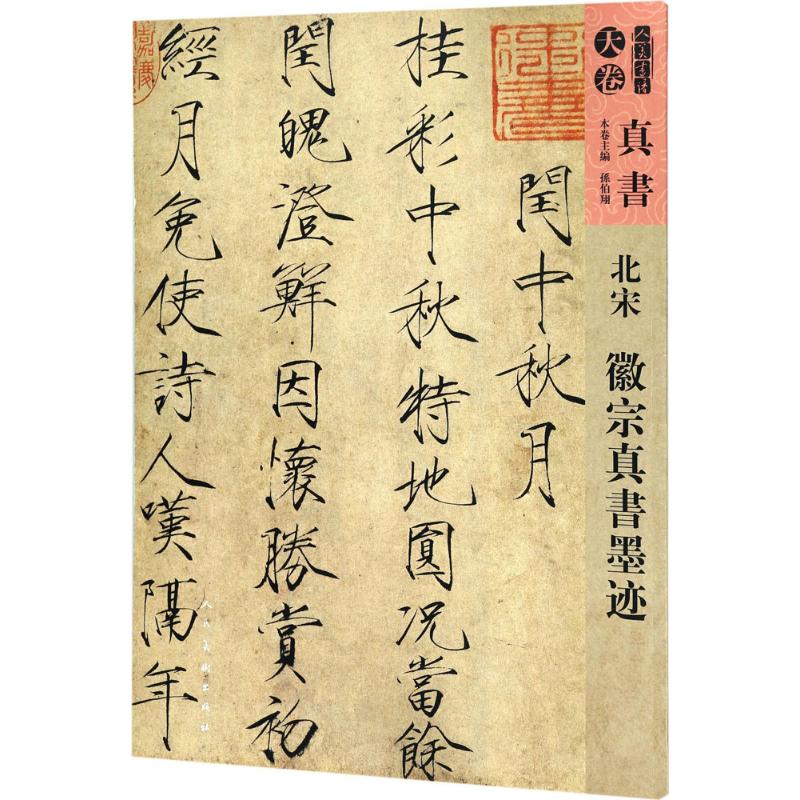 人美書譜
天卷
真書
本卷主編 孫伯翔
北宋 徽宗真書墨迹
御書
閏中秋月
桂彩中秋特地圓況當餘
閏魄澄鮮因懷勝賞初
經月免使詩人嘆隔年
嘉慶
人民美術出版社